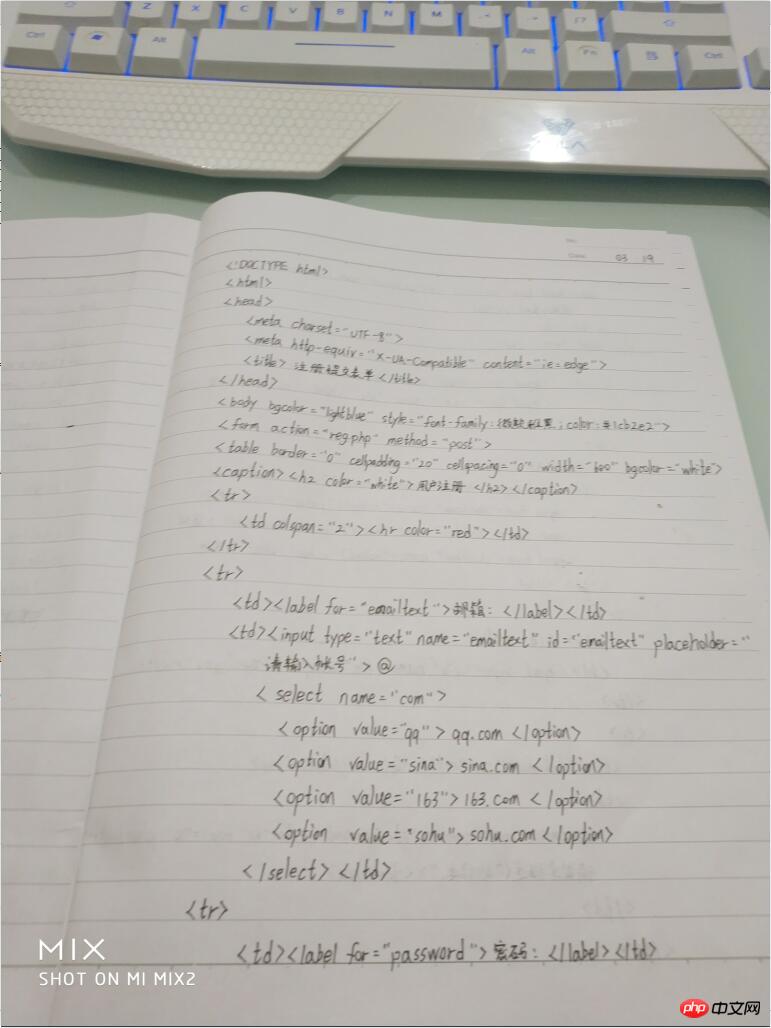 Z X C V B N M
Ctrl Alt Alt Fn Ctrl
03 19
<!DOCTYPE html>
<html>
<head>
<meta charset="UTF-8">
<meta http-equiv="X-UA-Compatible" content="ie=edge">
<title> 注册提交表单 </title>
</head>
<body bgcolor="lightblue" style="font-family:微软雅黑;color:#1cb2e2">
<form action="reg.php" method="post">
<table border="0" cellpadding="20" cellspacing="0" width="600" bgcolor="white">
<caption><h2 color="white">用户注册 </h2></caption>
<tr>
<td colspan="2"><hr color="red"></td>
</tr>
<tr>
<td><label for="emailtext">邮箱: </label></td>
<td><input type="text" name="emailtext" id="emailtext" placeholder="
请输入帐号"> @
<select name="com">
<option value="qq"> qq.com </option>
<option value="sina"> sina.com </option>
<option value="163"> 163.com </option>
<option value="sohu"> sohu.com </option>
</select> </td>
<tr>
<td><label for="password"> 密码: </label></td>
MIX
SHOT ON MI MIX2
php 中文网